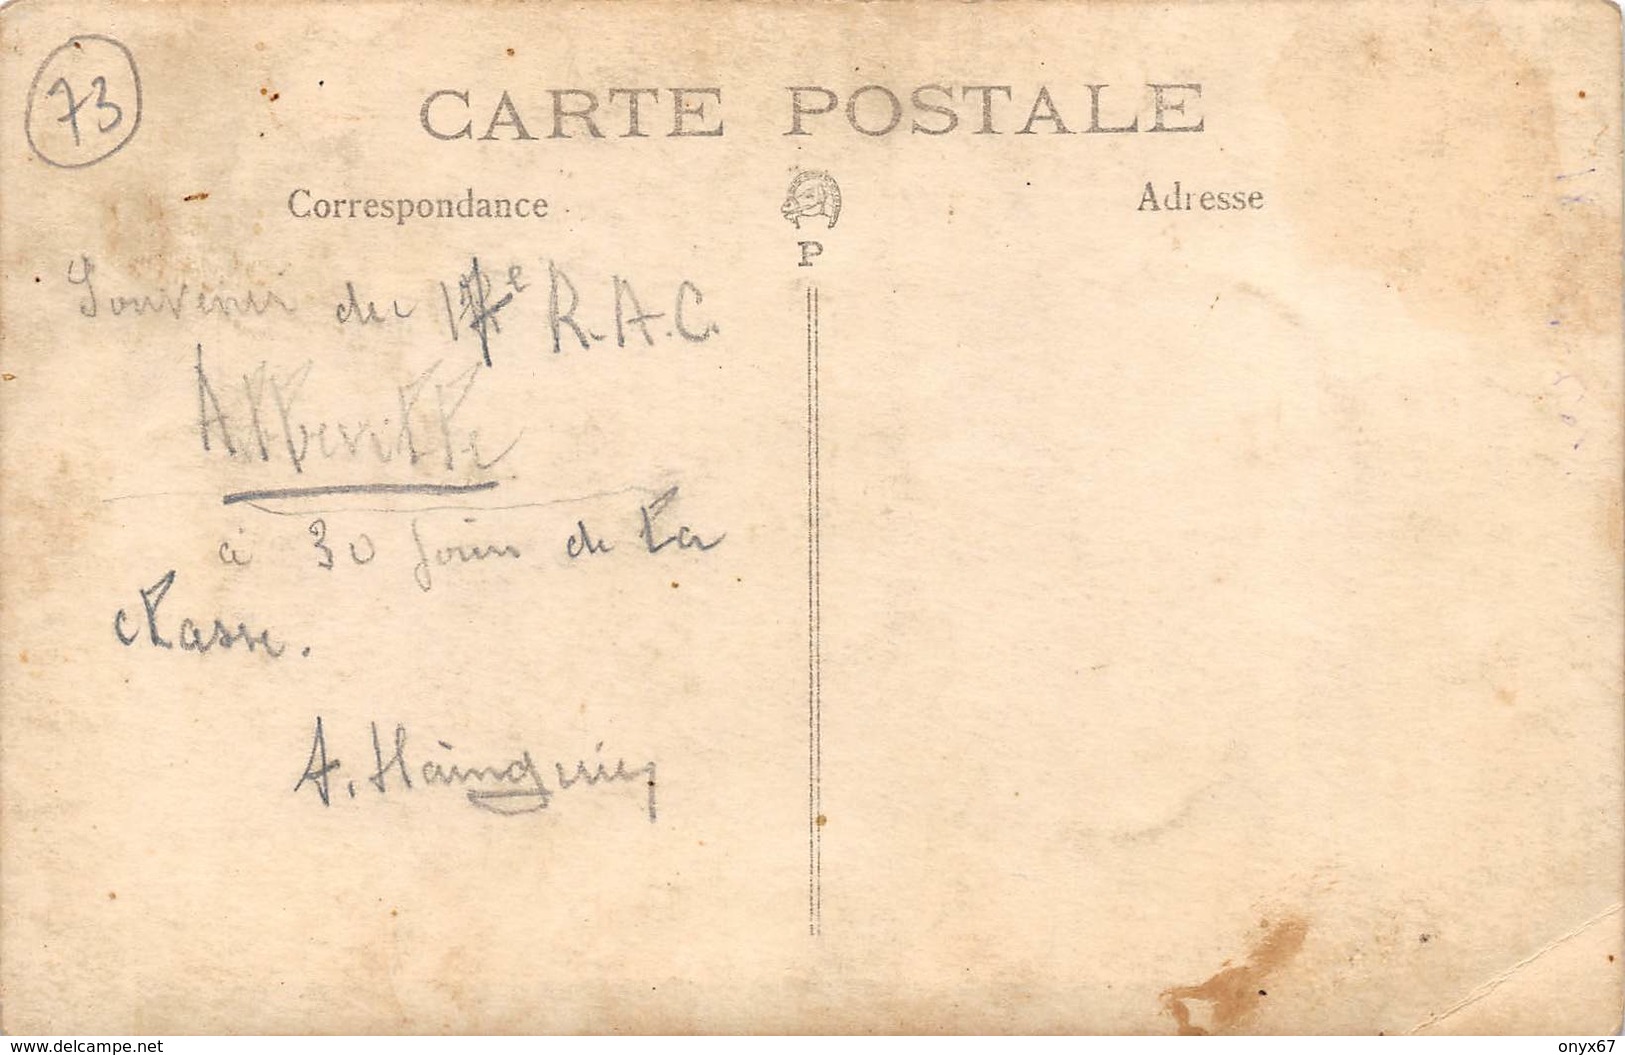 73
CARTE POSTALE
Correspondance
Adresse
P
Souvenir du 17e R.A.C.
Abbeville
à 30 jours de la
classe.
A.
delcampe.net
onyx67